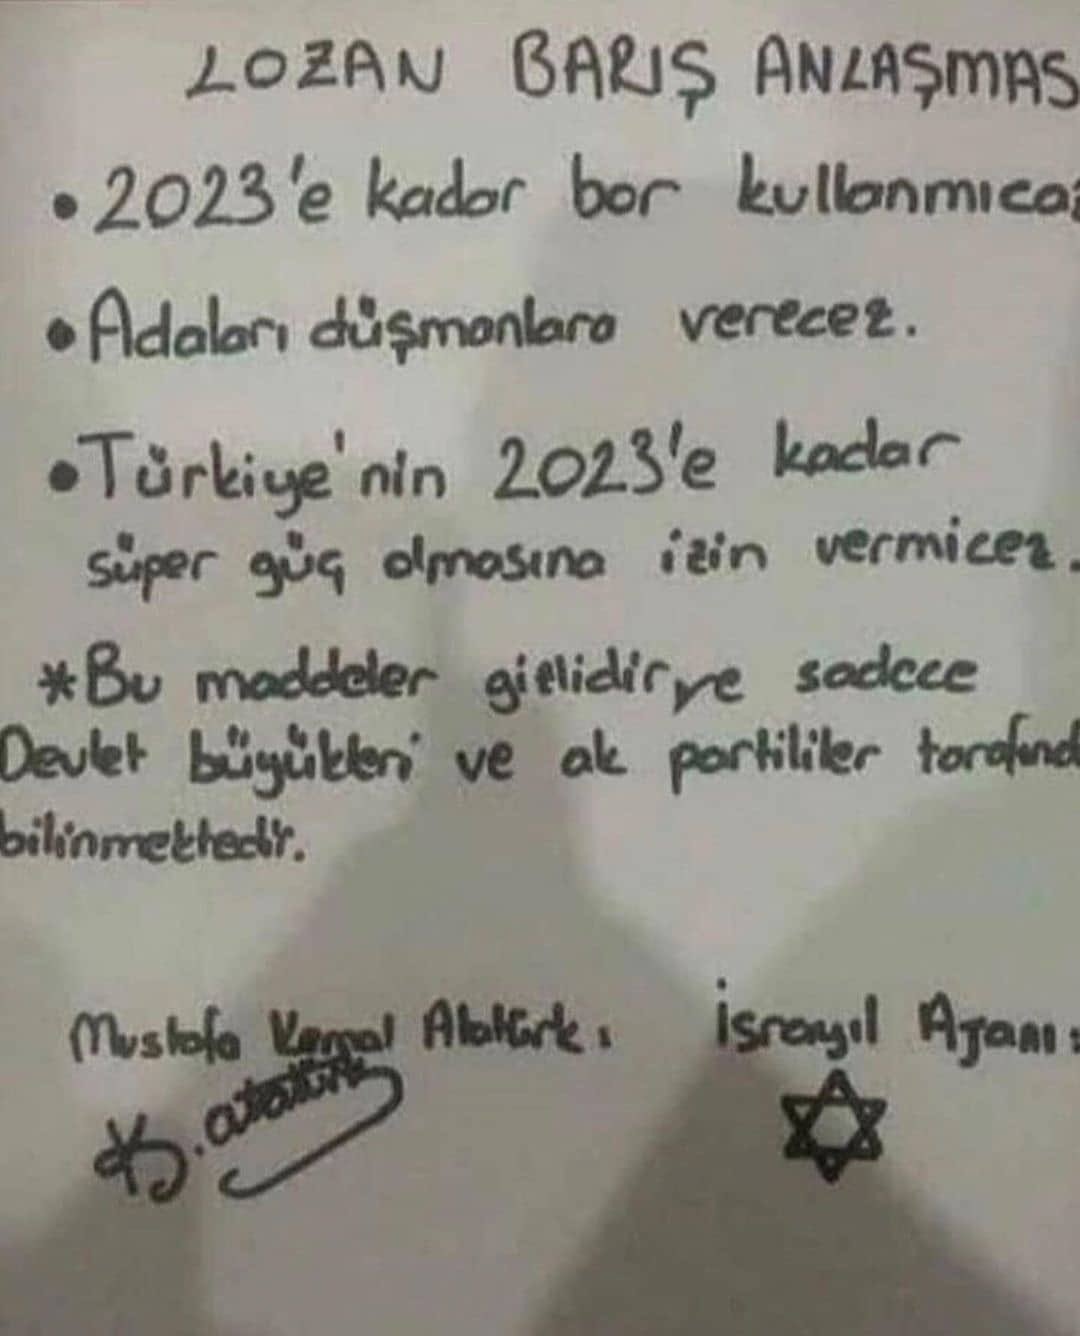 LOZAN BARIŞ ANLAŞMAS
• 2023'e kadar bor kullanmıcaz
• Adaları düşmanlara verecez.
• Türkiye'nin 2023'e kadar
süper güç olmasına izin vermicez.
* Bu maddeler gizlidir ve sadece
Devlet büyükleri ve ak partililer tarafınd
bilinmektedir.
Mustafa Kemal Atatürk: İsrayıl Ajanı:
K. atatürk